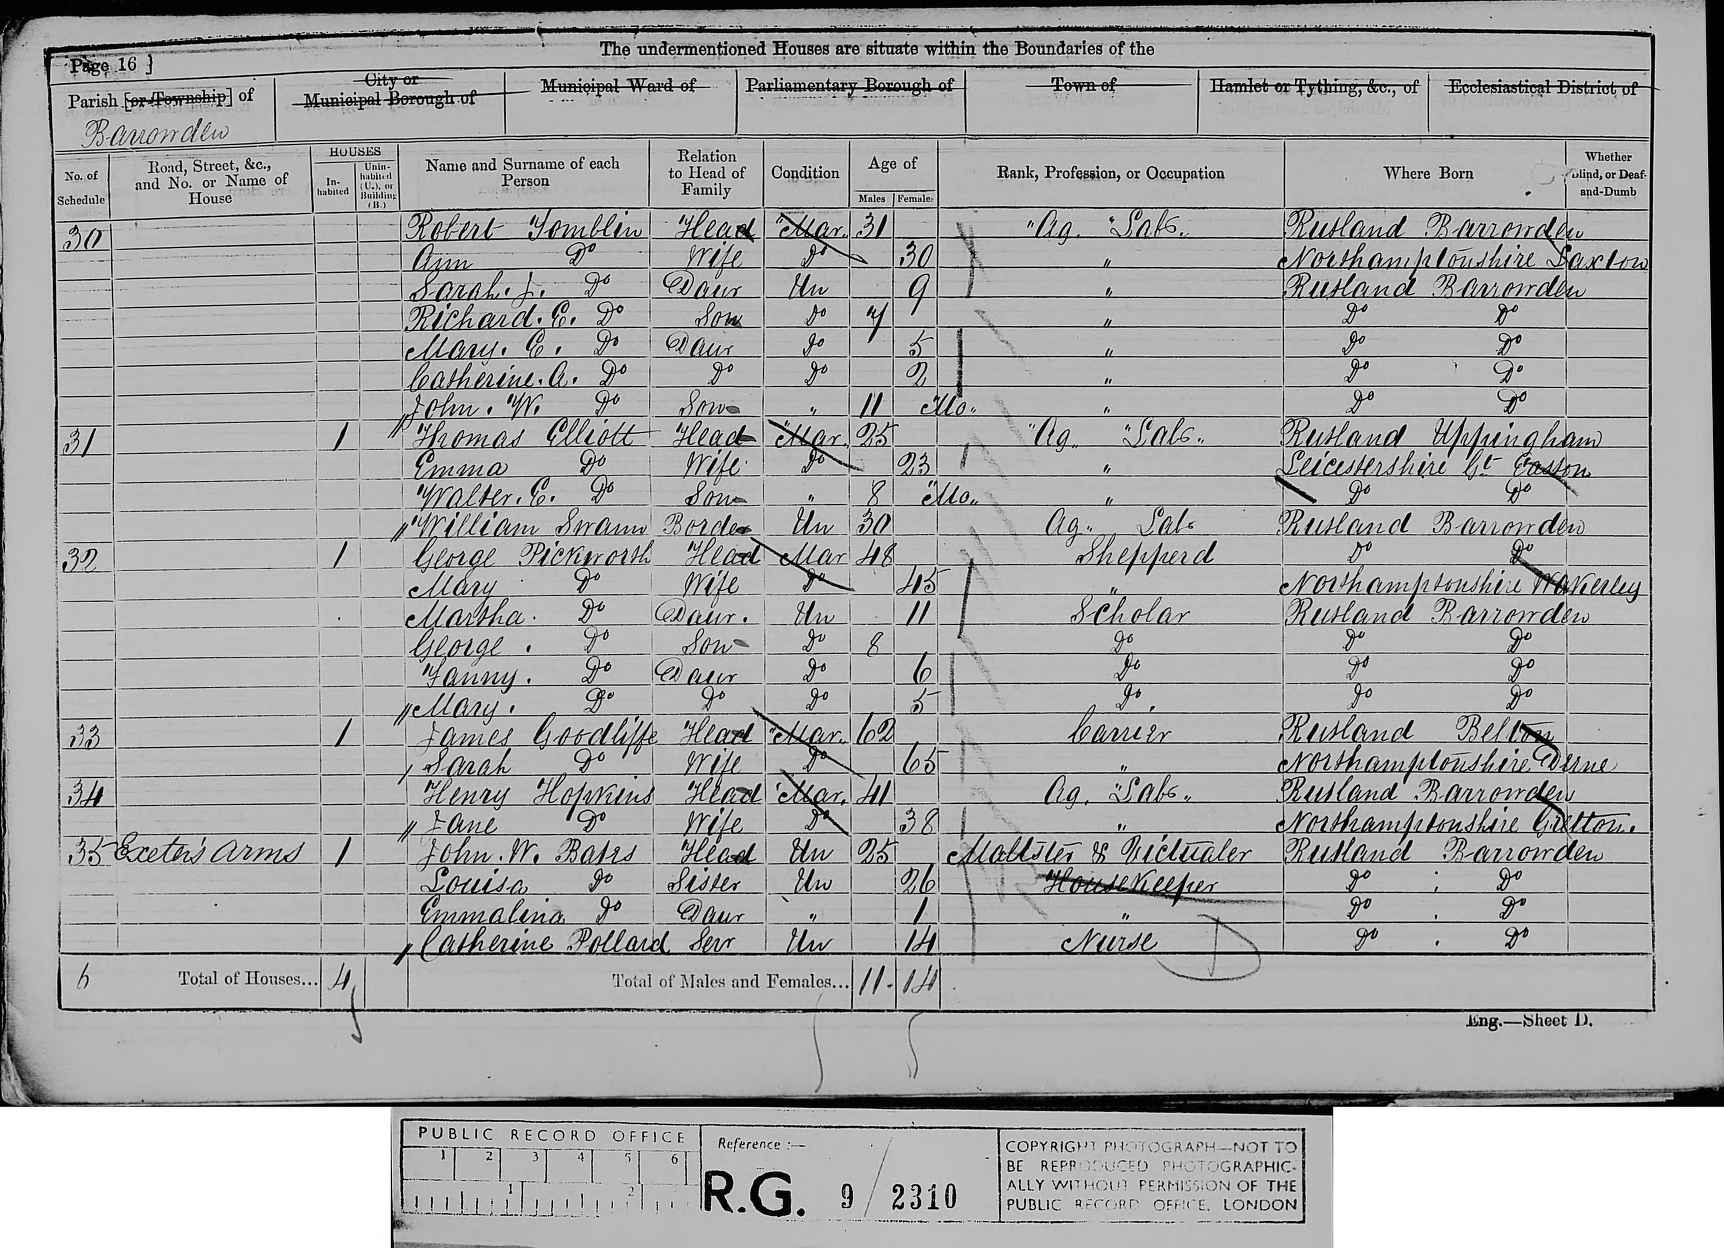 The undermentioned Houses are situate within the Boundaries of the
Page 16 ]
Parish [or Township] of
City or Municipal Borough of
Municipal Ward of
Parliamentary Borough of
Town of
Hamlet or Tything, &c., of
Ecclesiastical District of
Barrowden
No. of Schedule
Road, Street, &c., and No. or Name of House
HOUSES
In-habited
Unin-habited (U.), or Building (B.)
Name and Surname of each Person
Relation to Head of Family
Condition
Age of
Males
Females
Rank, Profession, or Occupation
Where Born
Whether Blind, or Deaf-and-Dumb
30 Robert Tomblin Head "Mar. 31 "Ag. "Lab. Rutland Barrowden
Ann Do Wife Do 30 " Northamptonshire Laxton
Sarah. J. Do Daur Un 9 " Rutland Barrowden
Richard. E. Do Son Do 7 " Do Do
Mary. E. Do Daur Do 5 " Do Do
Catherine. A. Do Do Do 2 " Do Do
" John. W. Do Son " 11 "Mo." " Do Do
31 1 Thomas Elliott Head "Mar. 25 "Ag. "Lab. Rutland Uppingham
Emma Do Wife Do 23 " Leicestershire Gt Easton
Walter. E. Do Son " 8 "Mo." " Do Do
" William Swann Border Un 30 Ag. Lab Rutland Barrowden
32 1 George Pickworth Head Mar 48 Shepperd Do Do
Mary Do Wife Do 45 " Northamptonshire Wakerley
Martha. Do Daur. Un 11 Scholar Rutland Barrowden
George. Do Son Do 8 Do Do Do
Fanny. Do Daur Do 6 Do Do Do
" Mary. Do Do Do 5 Do Do Do
33 1 James Goodliffe Head "Mar. 62 Carrier Rutland Belton
Sarah Do Wife Do 65 " Northamptonshire Dene
34 Henry Hopkins Head "Mar. 41 Ag. "Lab. Rutland Barrowden
" Jane Do Wife Do 38 " Northamptonshire Gretton.
35 Exeter's Arms 1 John. W. Bates Head Un 25 Maltster & Victualer Rutland Barrowden
Louisa Do Sister Un 26 Housekeeper Do Do
Emmalina Do Daur " 1 " Do Do
Catherine Pollard Serv Un 14 Nurse Do Do
D
6 Total of Houses... 4 Total of Males and Females... 11 14
5
Eng.—Sheet D.
PUBLIC RECORD OFFICE
1 2 3 4 5 6
1 2
Reference :—
R.G. 9 / 2310
COPYRIGHT PHOTOGRAPH—NOT TO
BE REPRODUCED PHOTOGRAPHIC-
ALLY WITHOUT PERMISSION OF THE
PUBLIC RECORD OFFICE, LONDON